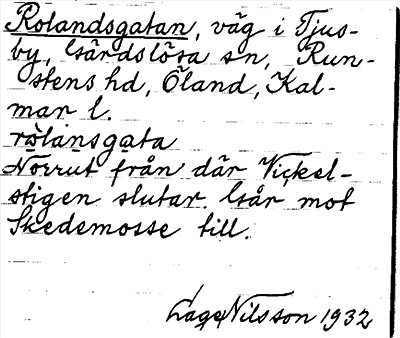 Rolandsgatan, väg i Tjus-
by, Gärdslösa sn, Run-
stens hd, Öland, Kal-
mar l.
rålansgata
Norrut från där Vickel-
stigen slutar. Går mot
Skedemosse till.
Lage Nilsson 1932